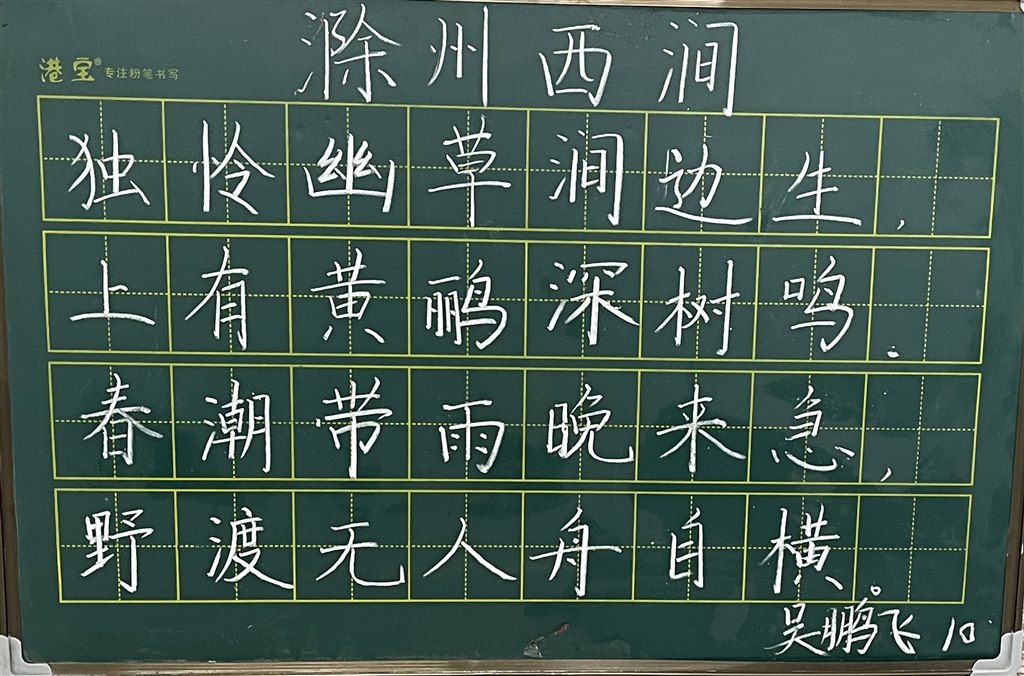 滁州西涧
港宝® 专注粉笔书写
独怜幽草涧边生，
上有黄鹂深树鸣.
春潮带雨晚来急，
野渡无人舟自横。
吴鹏飞 10